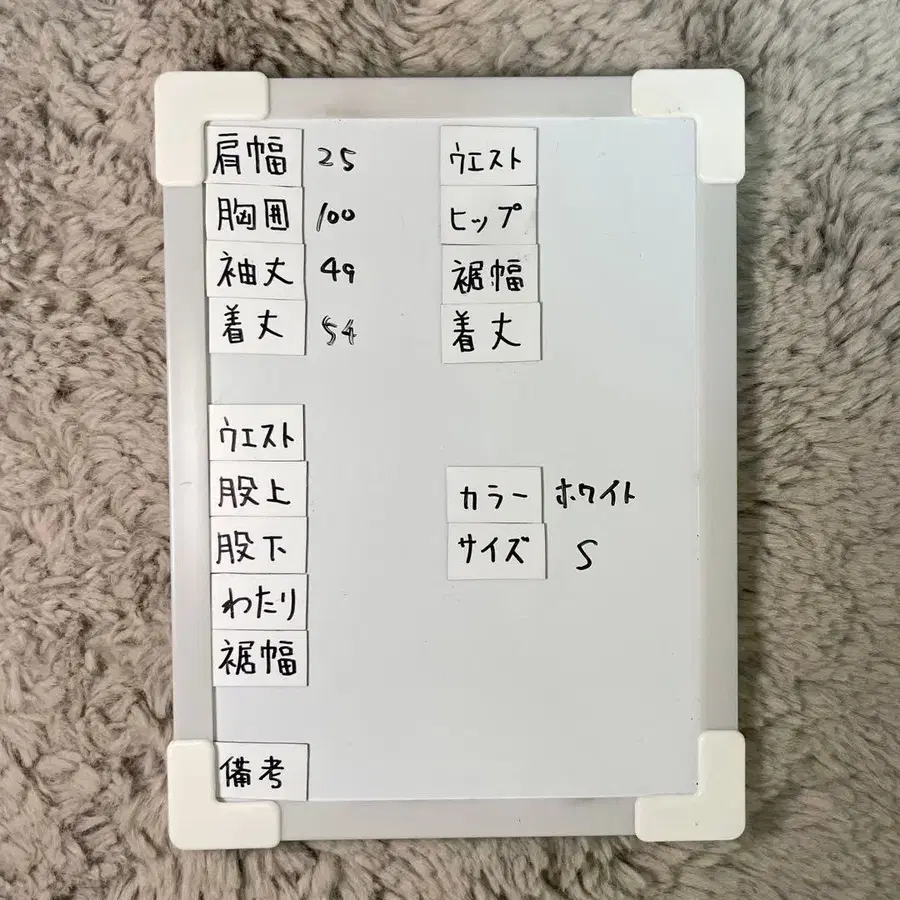 肩幅 25
胸囲 100
袖丈 49
着丈 54
ウエスト
ヒップ
裾幅
着丈
ウエスト
股上
股下
わたり
裾幅
カラー ホワイト
サイズ S
備考